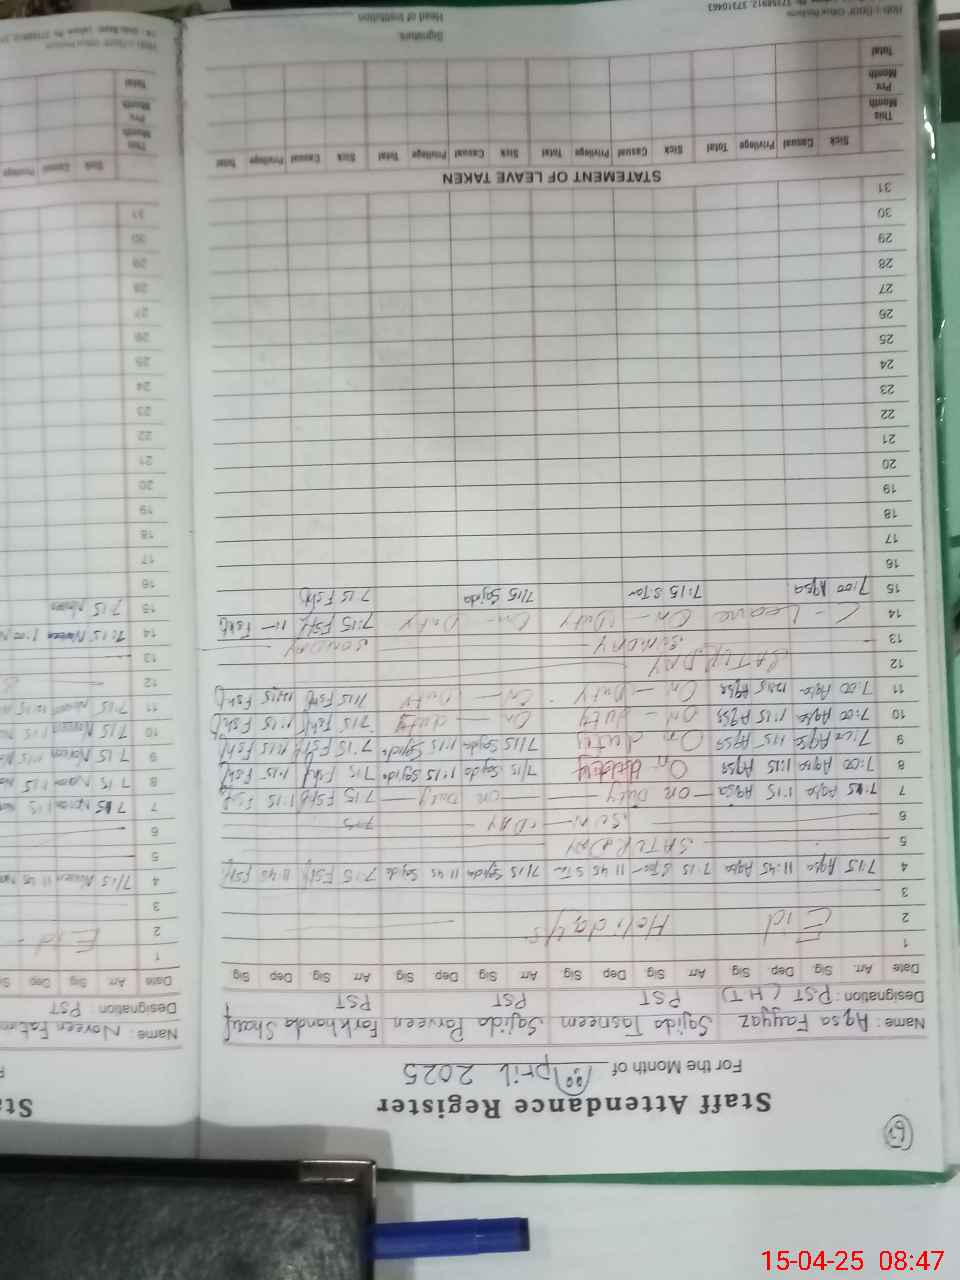 Staff Attendance Register
For the Month of April 2025
Name: Aqsa Fayyaz Sajida Tasneem Sajida Parveen Farkhanda Sharif
Designation: PST (HT) PST PST PST
Date Arr. Sig Dep Sig Arr Sig Dep Sig Arr Sig Dep Sig Arr Sig Dep Sig
1
2 Eid Holidays
3
4 7:15 Aqsa 11:45 Aqsa 7:15 S.Tas 11:45 S.Tas 7:15 Sajida 11:45 Sajida 7:15 11:45
5 SATURDAY
6 SUN DAY 7:15
7 7:15 Aqsa 1:15 Aqsa ON Duty ON Duty 7:15 1:15
8 7:00 Aqsa 1:15 Aqsa On 7:15 Sajida 1:15 Sajida 7:15 1:15
9 7:00 Aqsa 1:15 Aqsa On duty 7:15 Sajida 1:15 Sajida 7:15 1:15
10 7:00 Aqsa 1:15 Aqsa On duty On duty 7:15 1:15
11 7:00 Aqsa 12:15 Aqsa On Duty On Duty 7:15 12:15
12 SATURDAY
13 SUNDAY SUNDAY
14 Leave On Duty On Duty 7:15
15 7:00 Aqsa 7:15 S.Tas 7:15 Sajida 7:15
16
17
18
19
20
21
22
23
24
25
26
27
28
29
30
31
STATEMENT OF LEAVE TAKEN
Sick Casual Privilege Total Sick Casual Privilege Total Sick Casual Privilege Total Sick Casual Privilege Total
This Month
Pre. Month
Total
Signature
Head of Institution
Name: Noreen Fatima
Designation: PST
Date Arr Sig Dep
1
2 Eid
3
4 7:15 Noreen 11:45
5
6
7 7:15 Noreen 1:15
8 7:15 Noreen 1:15
9 7:15 Noreen 1:15
10 7:15 Noreen 1:15
11 7:15 Noreen 12:15
12
13
14 7:15 Noreen 1:00
15 7:15 Noreen
16
17
18
19
20
21
22
23
24
25
26
27
28
29
30
31
Sick Casual Privilege
This Month
Pre. Month
Total
15-04-25 08:47